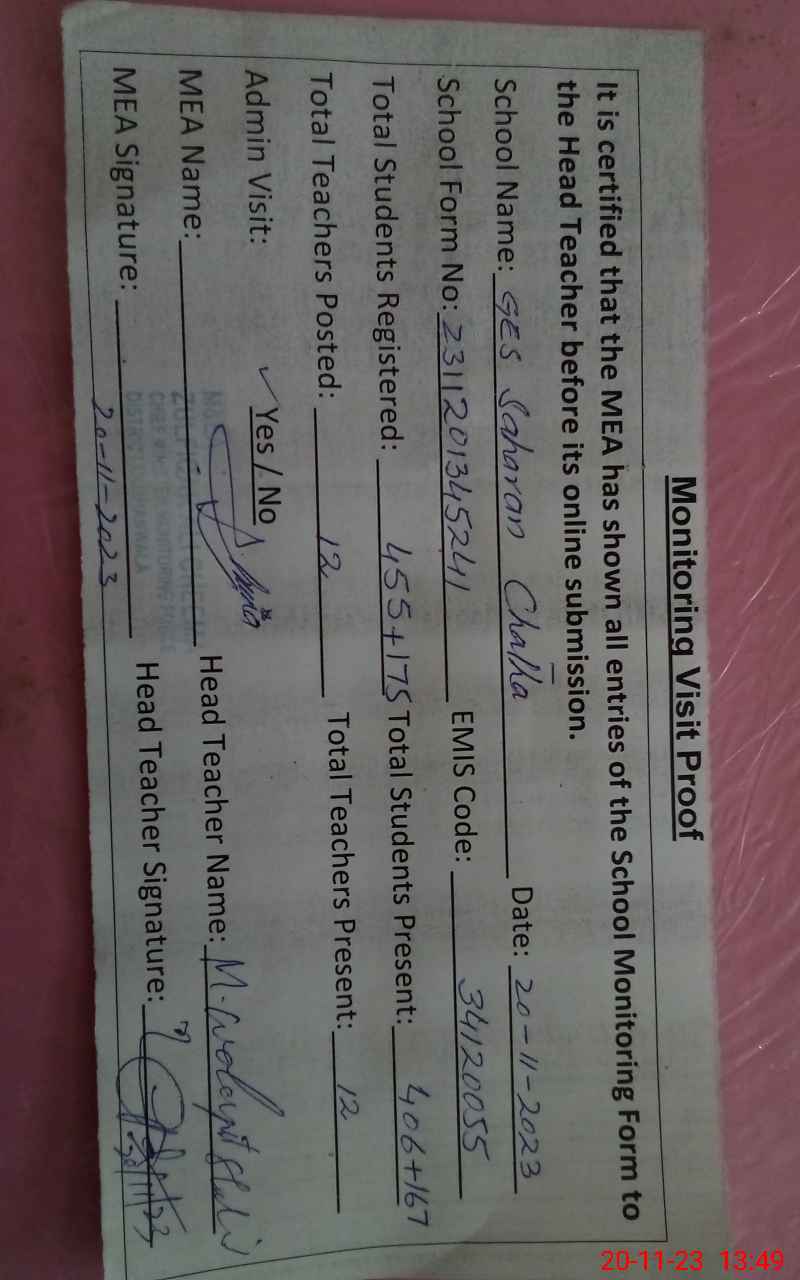 Monitoring Visit Proof
It is certified that the MEA has shown all entries of the School Monitoring Form to
the Head Teacher before its online submission.
School Name: GES Saharan Chatha Date: 20-11-2023
School Form No: 2311201345241 EMIS Code: 34120055
Total Students Registered: 455+175 Total Students Present: 406+167
Total Teachers Posted: 12 Total Teachers Present: 12
Admin Visit: ✓ Yes / No
MEA Name: Head Teacher Name: M.
MEA Signature: Head Teacher Signature:
20-11-2023
20-11-23 13:49